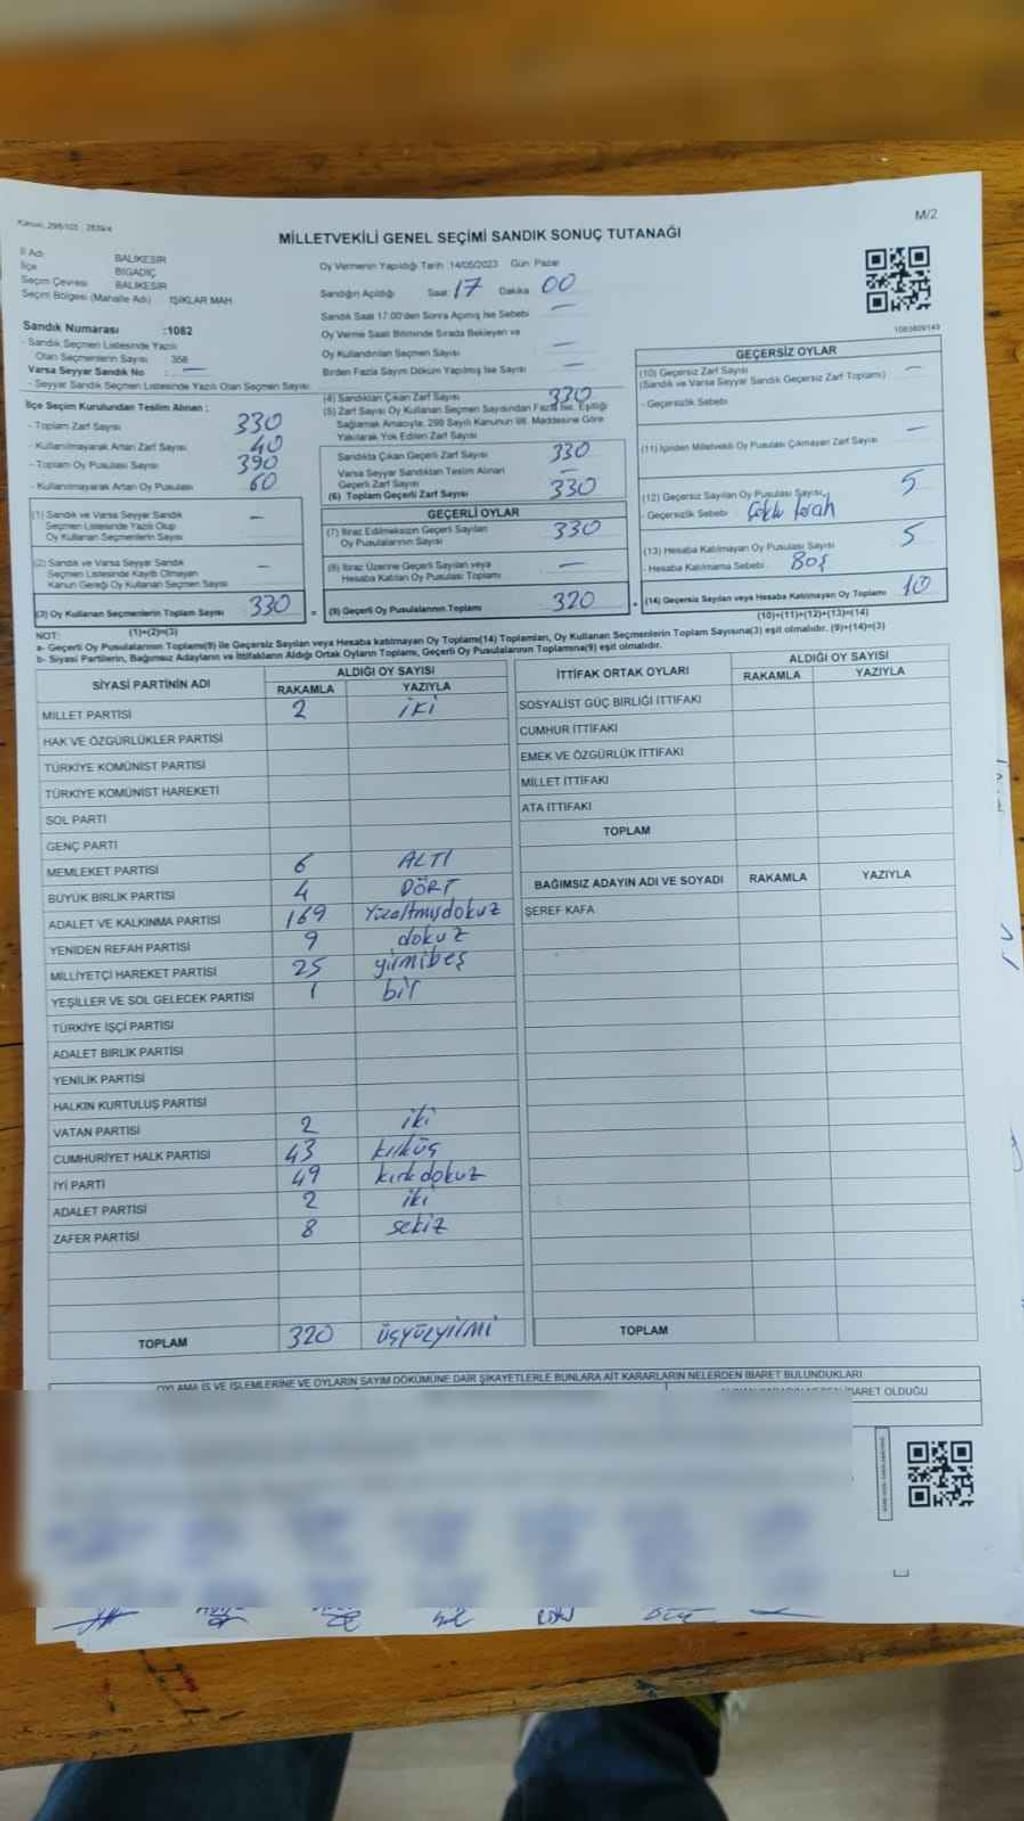 M/2
MİLLETVEKİLİ GENEL SEÇİMİ SANDIK SONUÇ TUTANAĞI
İl Adı BALIKESİR
İlçe BİGADİÇ
Seçim Çevresi BALIKESİR
Seçim Bölgesi (Mahalle Adı) IŞIKLAR MAH
Oy Vermenin Yapıldığı Tarih :14/05/2023 Gün: Pazar
Sandığın Açıldığı Saat: 17 Dakika 00
Sandık Saat 17:00'den Sonra Açılmış İse Sebebi —
Oy Verme Saati Bitiminde Sırada Bekleyen ve
Oy Kullandırılan Seçmen Sayısı —
Birden Fazla Sayım Döküm Yapılmış İse Sayısı —
Sandık Numarası :1082
- Sandık Seçmen Listesinde Yazılı
Olan Seçmenlerin Sayısı 358
Varsa Seyyar Sandık No : —
- Seyyar Sandık Seçmen Listesinde Yazılı Olan Seçmen Sayısı
İlçe Seçim Kurulundan Teslim Alınan :
- Toplam Zarf Sayısı 330
- Kullanılmayarak Artan Zarf Sayısı 40
- Toplam Oy Pusulası Sayısı 390
- Kullanılmayarak Artan Oy Pusulası 60
(1) Sandık ve Varsa Seyyar Sandık
Seçmen Listesinde Yazılı Olup
Oy Kullanan Seçmenlerin Sayısı —
(2) Sandık ve Varsa Seyyar Sandık
Seçmen Listesinde Kayıtlı Olmayan
Kanun Gereği Oy Kullanan Seçmen Sayısı —
(3) Oy Kullanan Seçmenlerin Toplam Sayısı 330
(1)+(2)=(3)
(4) Sandıktan Çıkan Zarf Sayısı 330
(5) Zarf Sayısı Oy Kullanan Seçmen Sayısından Fazla İse, Eşitliği
Sağlamak Amacıyla, 298 Sayılı Kanunun 98. Maddesine Göre
Yakılarak Yok Edilen Zarf Sayısı
Sandıkta Çıkan Geçerli Zarf Sayısı 330
Varsa Seyyar Sandıktan Teslim Alınan
Geçerli Zarf Sayısı —
(6) Toplam Geçerli Zarf Sayısı 330
GEÇERLİ OYLAR
(7) İtiraz Edilmeksizin Geçerli Sayılan
Oy Pusulalarının Sayısı 330
(8) İtiraz Üzerine Geçerli Sayılan veya
Hesaba Katılan Oy Pusulası Toplamı —
= (9) Geçerli Oy Pusulalarının Toplamı 320
GEÇERSİZ OYLAR
(10) Geçersiz Zarf Sayısı —
(Sandık ve Varsa Seyyar Sandık Geçersiz Zarf Toplamı)
- Geçersizlik Sebebi
(11) İçinden Milletvekili Oy Pusulası Çıkmayan Zarf Sayısı —
(12) Geçersiz Sayılan Oy Pusulası Sayısı 5
- Geçersizlik Sebebi
(13) Hesaba Katılmayan Oy Pusulası Sayısı 5
- Hesaba Katılmama Sebebi Boş
+ (14) Geçersiz Sayılan veya Hesaba Katılmayan Oy Toplamı 10
(10)+(11)+(12)+(13)=(14)
NOT:
a- Geçerli Oy Pusulalarının Toplamı(9) ile Geçersiz Sayılan veya Hesaba katılmayan Oy Toplamı(14) Toplamları, Oy Kullanan Seçmenlerin Toplam Sayısına(3) eşit olmalıdır. (9)+(14)=(3)
b- Siyasi Partilerin, Bağımsız Adayların ve İttifakların Aldığı Ortak Oyların Toplamı, Geçerli Oy Pusulalarının Toplamına(9) eşit olmalıdır.
SİYASİ PARTİNİN ADI ALDIĞI OY SAYISI
RAKAMLA YAZIYLA
MİLLET PARTİSİ 2 iki
HAK VE ÖZGÜRLÜKLER PARTİSİ
TÜRKİYE KOMÜNİST PARTİSİ
TÜRKİYE KOMÜNİST HAREKETİ
SOL PARTİ
GENÇ PARTİ
MEMLEKET PARTİSİ 6 ALTI
BÜYÜK BİRLİK PARTİSİ 4 DÖRT
ADALET VE KALKINMA PARTİSİ 169 Yüzaltmışdokuz
YENİDEN REFAH PARTİSİ 9 dokuz
MİLLİYETÇİ HAREKET PARTİSİ 25 yirmibeş
YEŞİLLER VE SOL GELECEK PARTİSİ 1 bir
TÜRKİYE İŞÇİ PARTİSİ
ADALET BİRLİK PARTİSİ
YENİLİK PARTİSİ
HALKIN KURTULUŞ PARTİSİ
VATAN PARTİSİ 2 iki
CUMHURİYET HALK PARTİSİ 43 kırküç
İYİ PARTİ 49 kırkdokuz
ADALET PARTİSİ 2 iki
ZAFER PARTİSİ 8 sekiz
TOPLAM 320 üçyüzyirmi
İTTİFAK ORTAK OYLARI ALDIĞI OY SAYISI
RAKAMLA YAZIYLA
SOSYALİST GÜÇ BİRLİĞİ İTTİFAKI
CUMHUR İTTİFAKI
EMEK VE ÖZGÜRLÜK İTTİFAKI
MİLLET İTTİFAKI
ATA İTTİFAKI
TOPLAM
BAĞIMSIZ ADAYIN ADI VE SOYADI RAKAMLA YAZIYLA
ŞEREF KAFA
TOPLAM
OYLAMA İŞ VE İŞLEMLERİNE VE OYLARIN SAYIM DÖKÜMÜNE DAİR ŞİKAYETLERLE BUNLARA AİT KARARLARIN NELERDEN İBARET BULUNDUKLARI
İBARET OLDUĞU